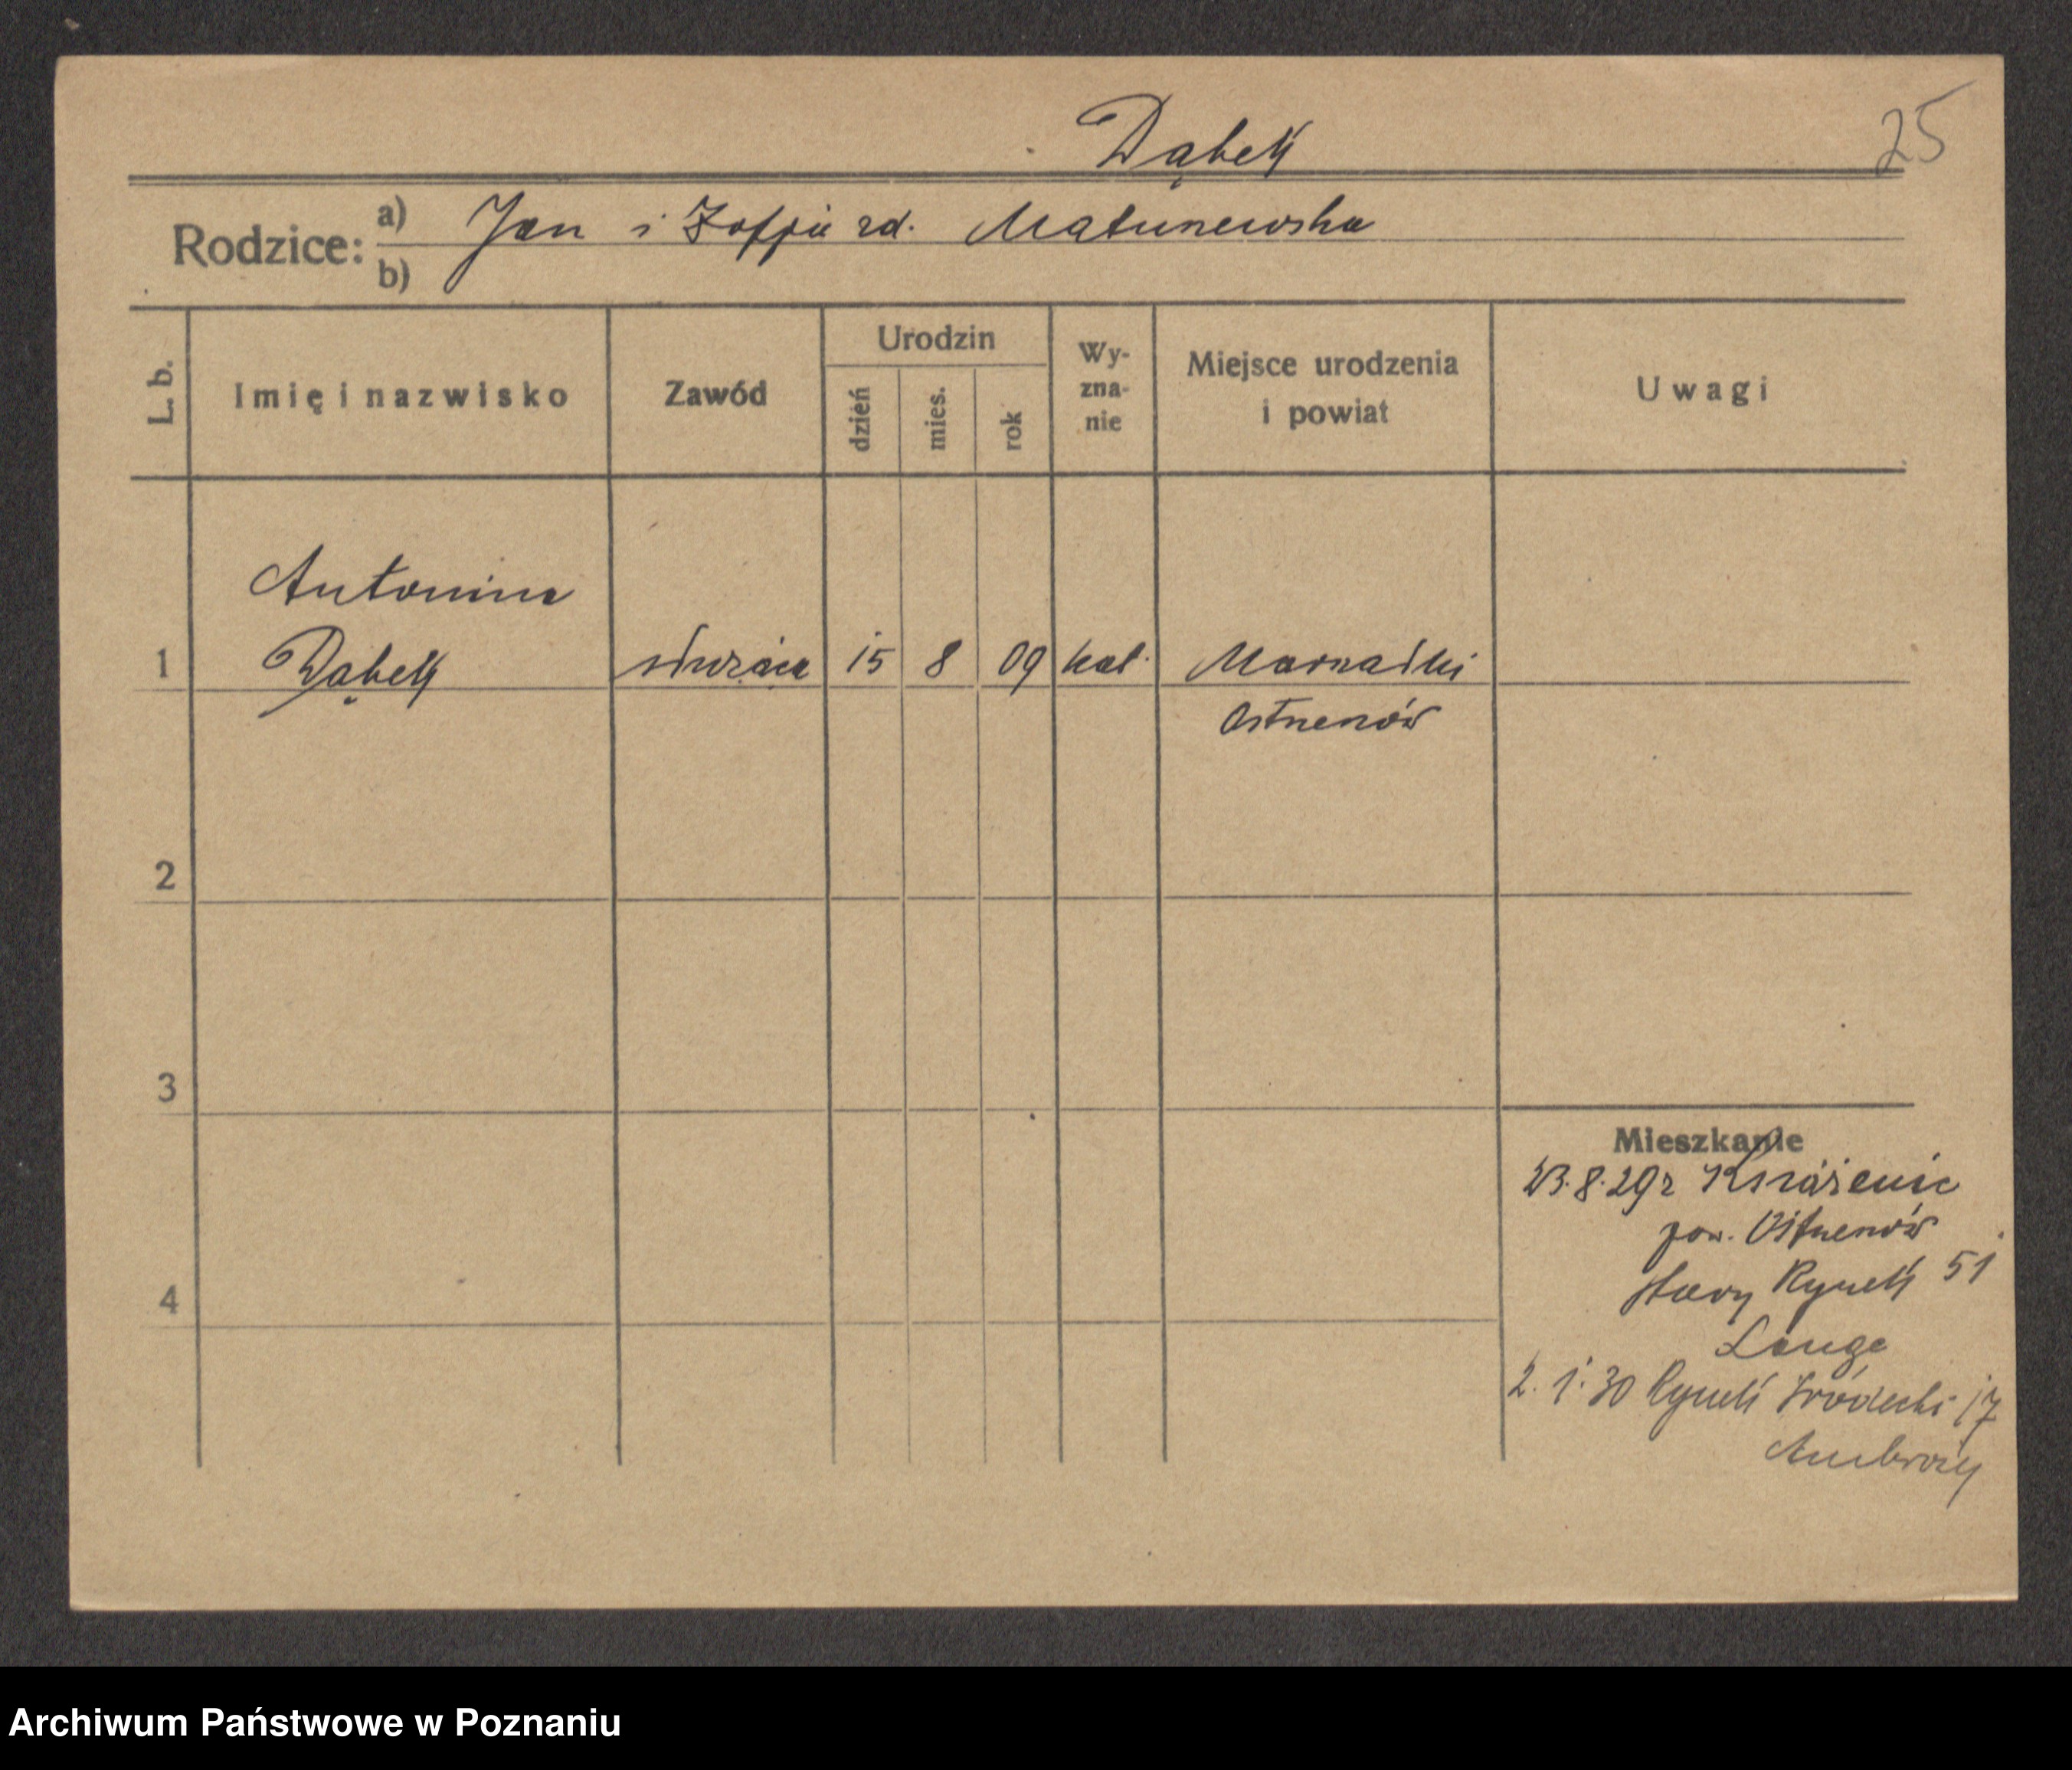 Dąbek
25
Rodzice: a) Jan i Zofja zd. Matuszewska
b)
L. b. Imię i nazwisko Zawód Urodzin dzień mies. rok Wy-zna-nie Miejsce urodzenia i powiat Uwagi
Antonina
1 Dąbek służąca 15 8 09 kat.
Ostrzeszów
2
3
Mieszkanie
23.8.29r Książenice
pow. Ostrzeszów
4
Stary Rynek 51
Lange
2. 1. 30 Rynek Śródecki 17
Ambroży
Archiwum Państwowe w Poznaniu